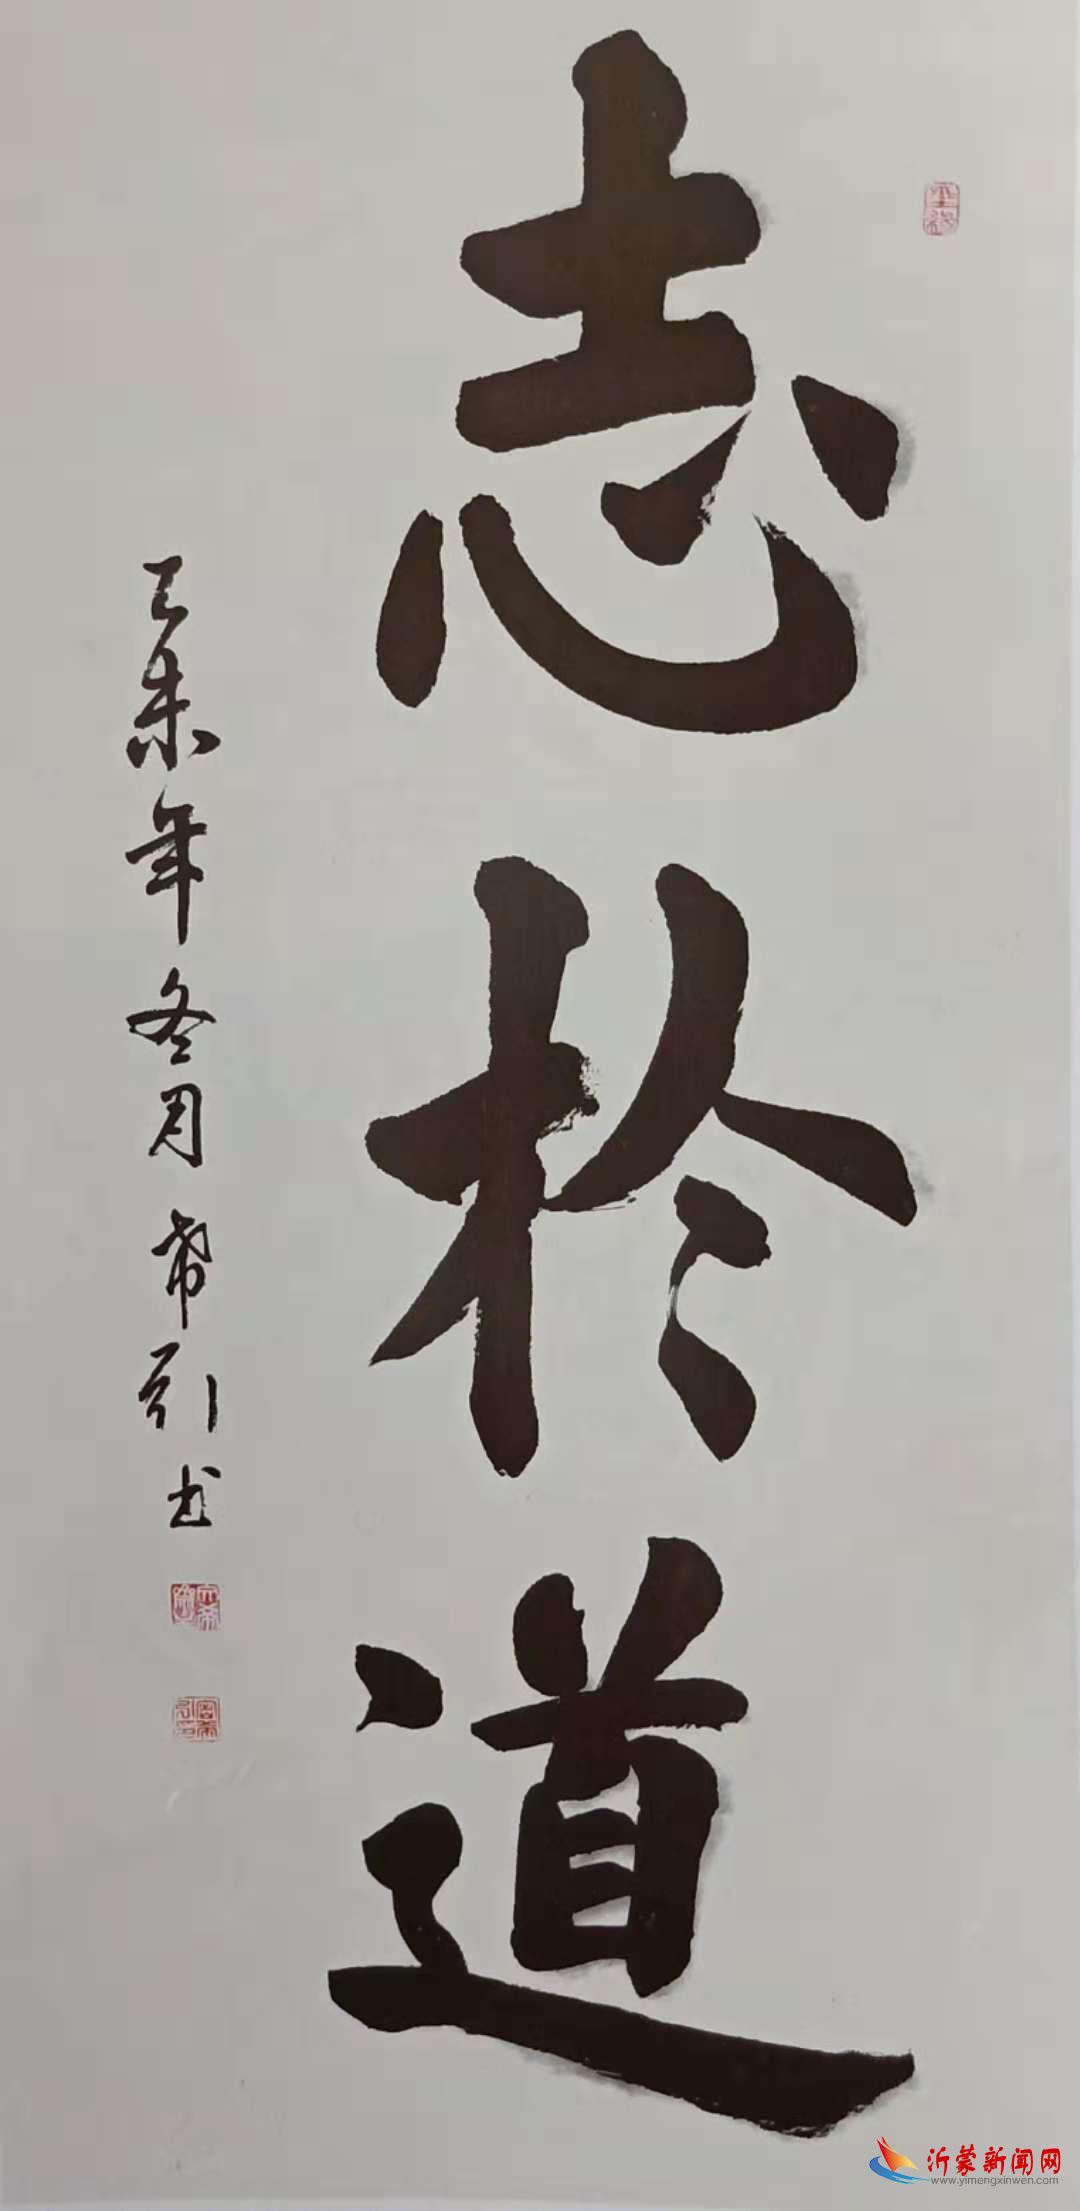 志於道
未年冬月 希引书
沂蒙新闻网
www.yimengxinwen.com